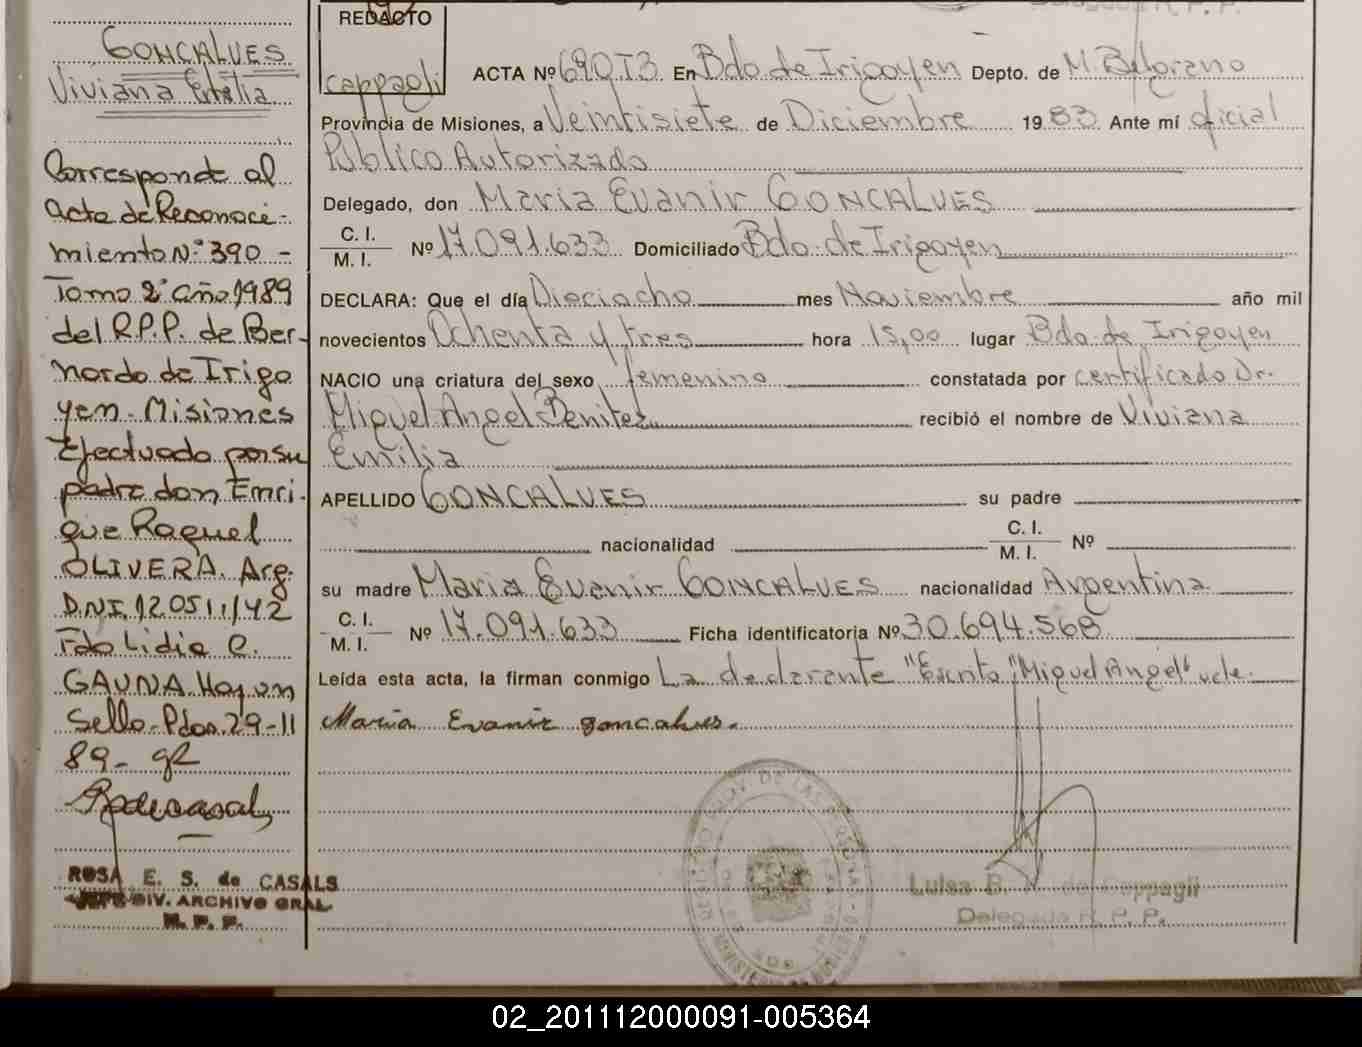 GONCALVES
Viviana Emilia
Corresponde al
acta de Reconoci-
miento N:º 390 -
Tomo 2º año 1989
del R.P.P. de Ber-
nardo de Irigo
yen - Misiones
Efectuado por su
padre don Enri-
que Raquel
OLIVERA. Arg.
D.N.I. 12.051.142
Fdo Lidia C.
GAUNA. Hay un
Sello - Pdas. 29-11
89-
ROSA E. S. de CASALS
JEFE DIV. ARCHIVO GRAL.
R. P. P.
REDACTO
Ceppagli
ACTA Nº 690T3 En Bdo. de Irigoyen Depto. de M. Belgrano
Provincia de Misiones, a Veintisiete de Diciembre 1983. Ante mí oficial
Público Autorizado
Delegado, don Maria Evanir GONCALVES
C. I.
M. I. Nº 17.091.633 Domiciliado Bdo. de Irigoyen
DECLARA: Que el día Dieciocho mes Noviembre año mil
novecientos Ochenta y tres hora 15,00 lugar Bdo. de Irigoyen
NACIO una criatura del sexo femenino constatada por certificado Dr.
Miguel Angel Benitez recibió el nombre de Viviana
Emilia
APELLIDO GONCALVES su padre
nacionalidad C. I.
M. I. Nº
su madre Maria Evanir GONCALVES nacionalidad Argentina
C. I.
M. I. Nº 17.091.633 Ficha identificatoria Nº 30.694.568
Leída esta acta, la firman conmigo La declarante "Escrito "Miguel Angel" vale.
Maria Evanir goncalves.
Luisa B. de Ceppagli
Delegada R. P. P.
02_201112000091-005364